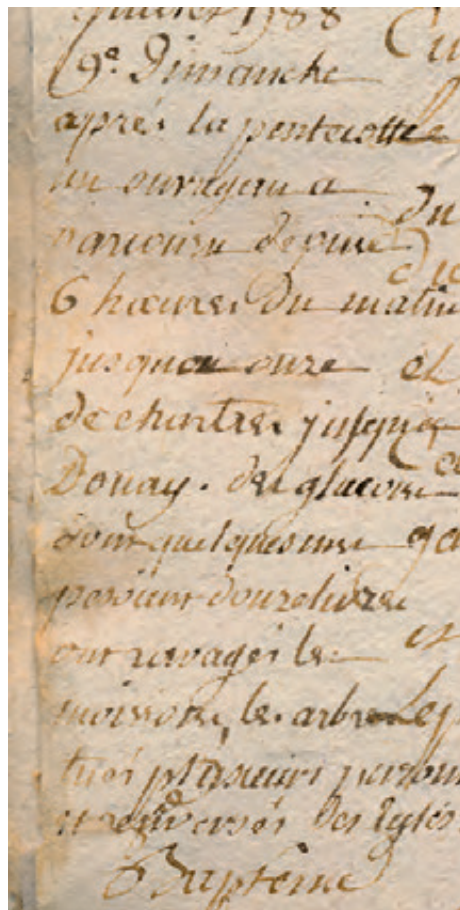 juillet 1788
9e. Dimanche
aprés la pentecotte
un ouragan a
parcouru depuis
6 hœures du matin
jusquau onze et
de chartres jusqu'a
Douay. des glacons
dont quelques uns
pesoient douze livres
ont ravagés les
moissons, les arbres
tués plusieurs person
et renversés des Eglis
Baptême